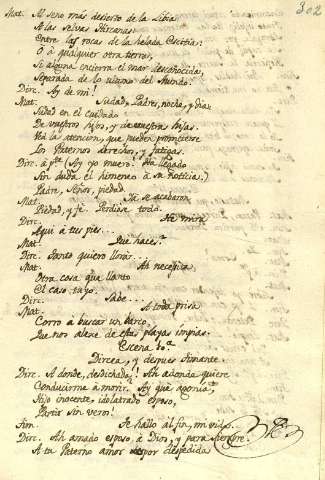 302
Mat. Al seno más desierto de la Libia
A las selvas Hircanas:
Entre las rocas de la helada Escitia:
O à qualquier otra tierra,
Si alguna encierra el mar desconocida,
Separada de lo ultimo del Mundo.
Dirc. Ay de mi!
Mat. Sudad, Padres, noche, y dia,
Sudad en el cuidado
De vuestros hijos, y de vuestras hijas.
Ha la atencion, que pueden prometerse
Los Paternos derechos, y fatigas.
Dirc. à pte (Ay yo muero! Ha llegado
Sin duda el himeneo à su noticia.)
Padre, Señor, piedad.
Mat. Ya se acabaron
Piedad, y fe. Perdiose todo.
Dirc. Ya mira
Aqui à tus pies...
Mat. Que haces?
Dirc. Tanto quiero llorar.
Mat. Ah necesita
Otra cosa que llanto
El caso tuyo.
Dirc. Sabe...
Mat. A toda prisa
Corro à buscar un barco,
Que nos aleje de estas playas impias.
Escena 10.a
Dircea, y despues Timante.
Dirc. A donde, desdichada! Ah adonde quiere
Conducirme à morir. Ay què agonia!
Hijo inocente, idolatrado esposo,
Partir sin veros!
Tim. Te hallo al fin, mi vida.
Dirc. Ah amado esposo à Dios, y para siempre.
A tu Paterno amor por despedida